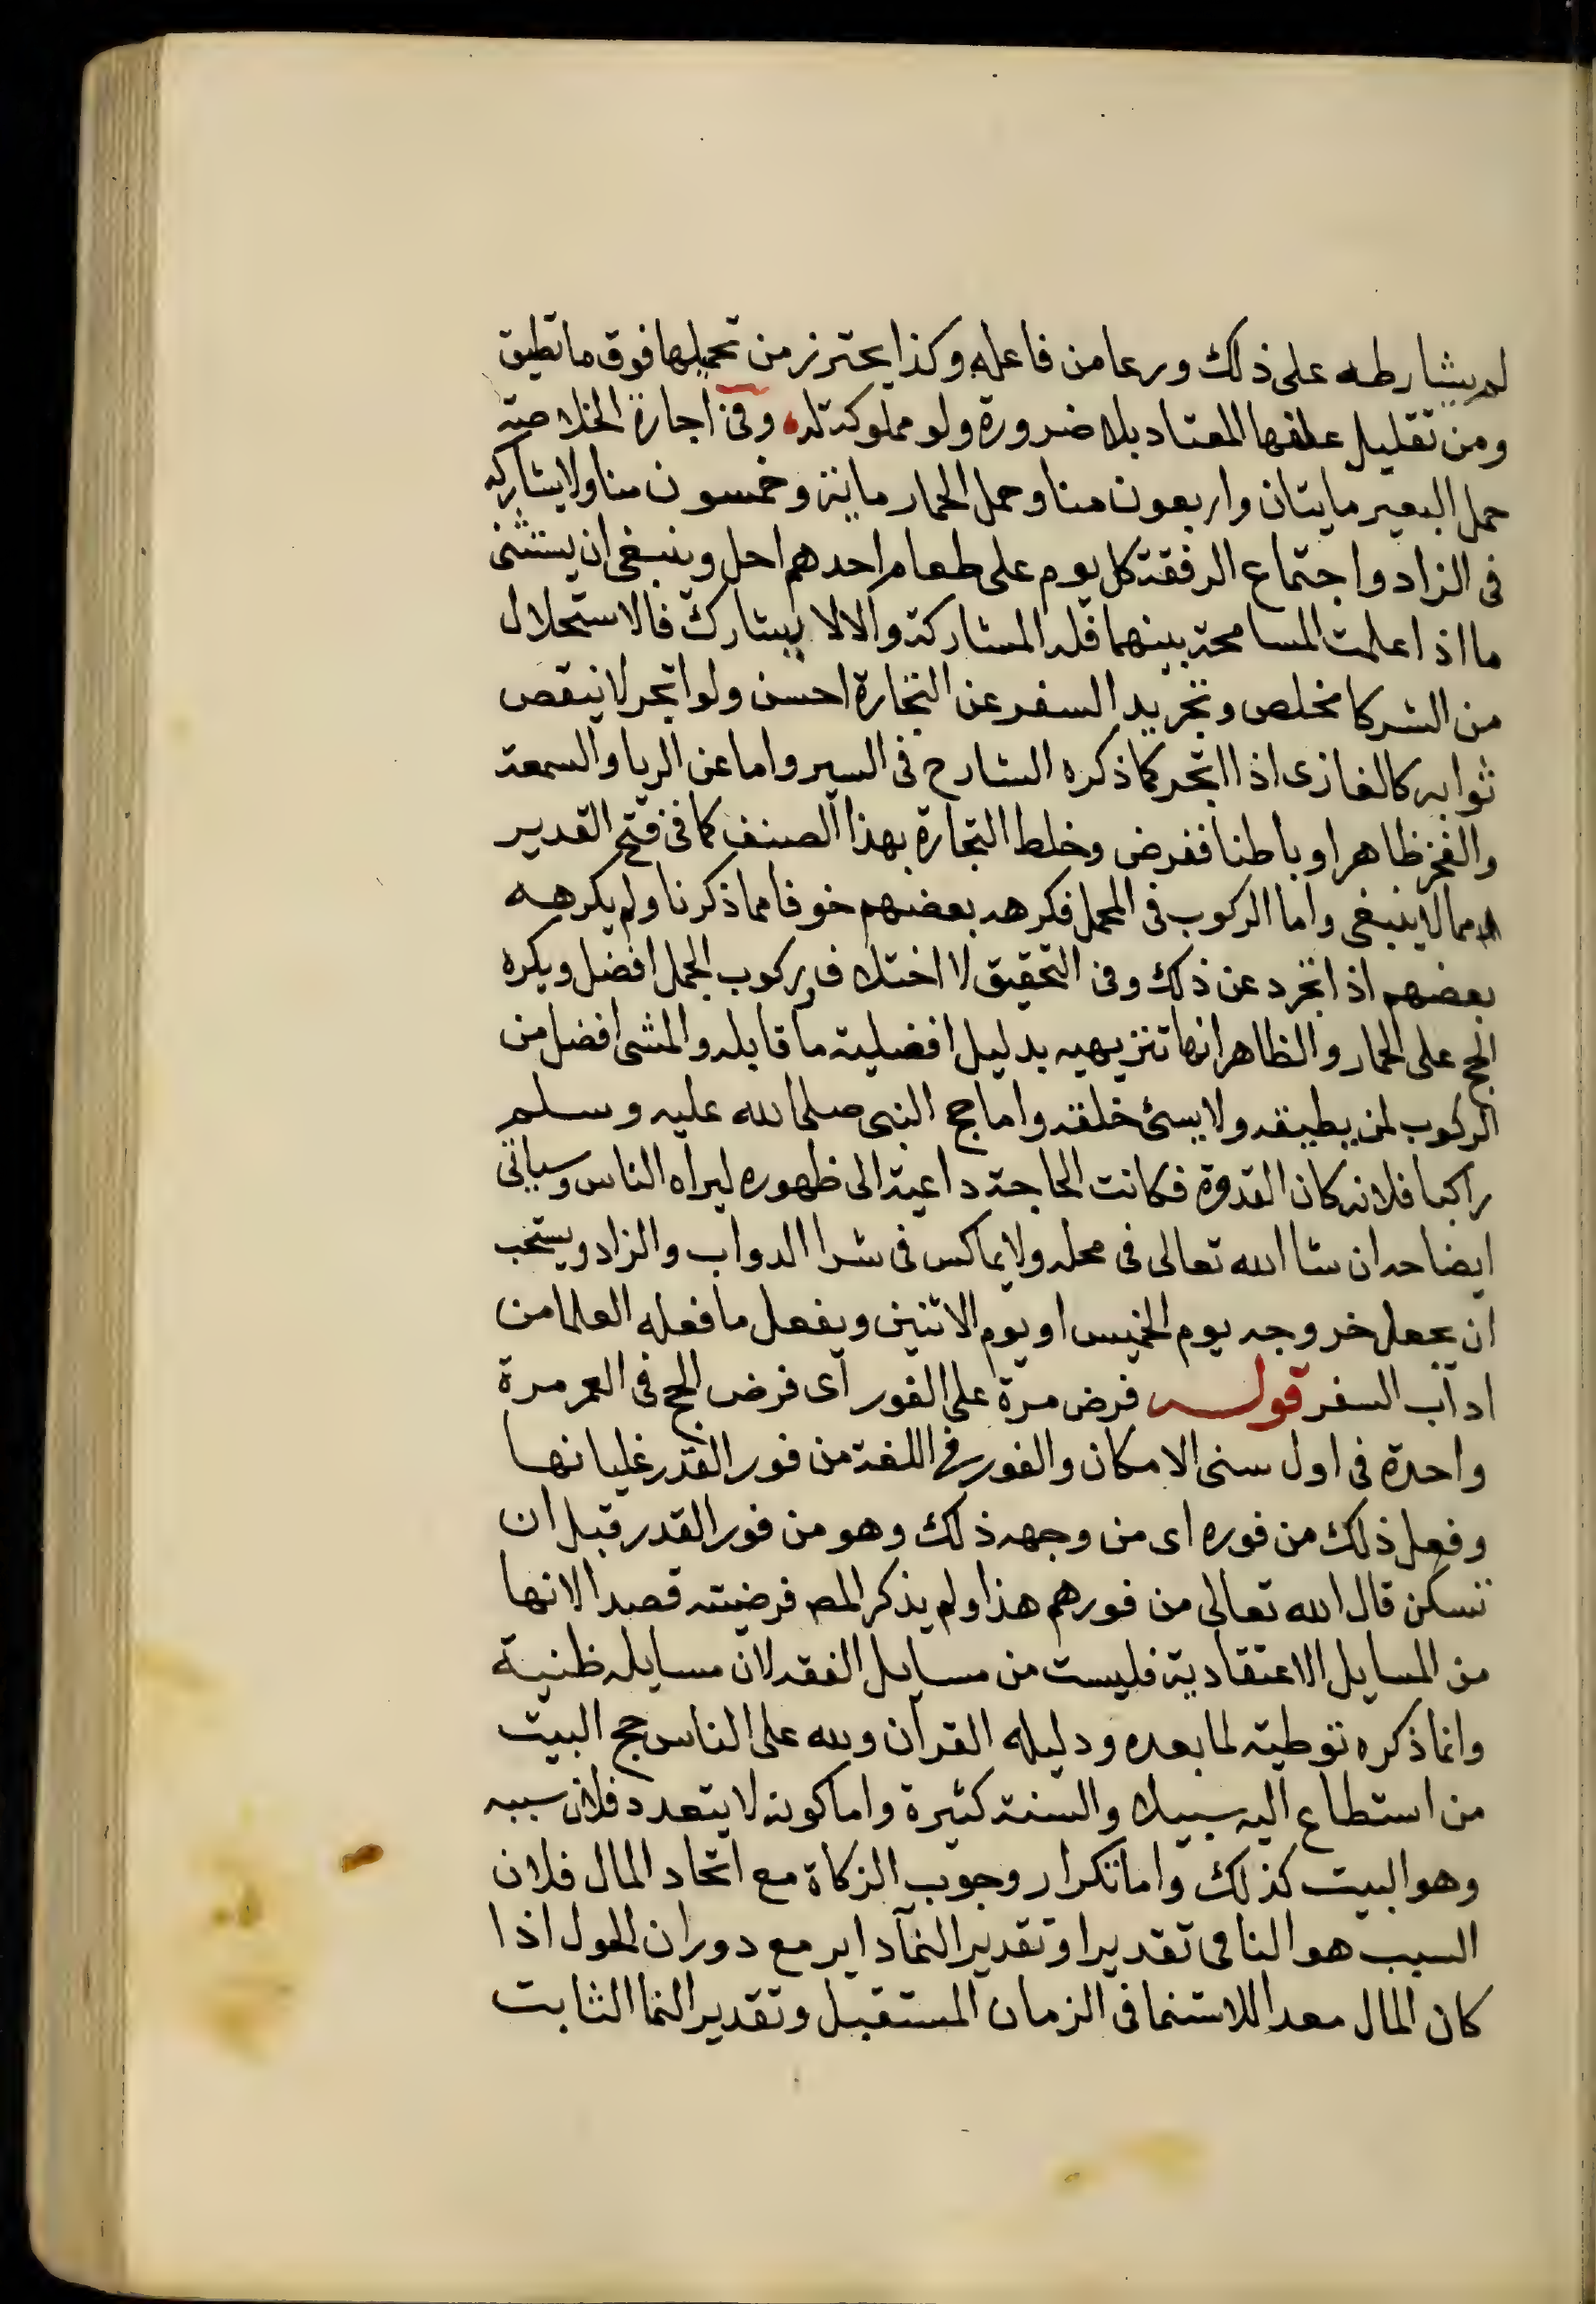 لم يشارطه على ذلك ورعا من فاعله وكذا يحترز من تحميلها فوق ما تطيق
ومن تقليل علفها المعتاد بلا ضرورة ولو مملوكة له وفى اجارة الخلاصة
حمل البعير مايتان واربعون منا وحمل الحمار ماية وخمسون منا ولا يشارك
فى الزاد واجتماع الرفقة كل يوم على طعام احدهم احل وينبغى ان يستثنى
ما اذا علمت المسامحة بينهما فله المشاركة والا لا يشارك فالاستحلال
من الشركا مخلص وتجريد السفر عن التجارة احسن ولو اتجر لا ينقص
ثوابه كالغازى اذا اتجر كما ذكره الشارح فى السير واما عن الريا والسمعة
والفخر ظاهرا وباطنا ففرض وخلط التجارة بهذا الصنف كما فى فتح القدير
مما لا ينبغى واما الركوب فى المحمل فكرهه بعضهم خوفا مما ذكرنا ولم يكرهه
بعضهم اذا تجرد عن ذلك وفى التحقيق لا اختلاف وركوب الجمل افضل ويكره
الحج على الحمار والظاهر انها تنزيهيه بدليل افضلية ما قابله والمشى افضل من
الركوب لمن يطيقه ولا يسئ خلقه واما حج النبى صلى الله عليه وسلم
راكبا فلانه كان القدوة فكانت الحاجة داعية الى ظهوره ليراه الناس وسياتى
ايضاحه ان شا الله تعالى فى محله ولا يماكس فى شرا الدواب والزاد ويستحب
ان يجعل خروجه يوم الخميس او يوم الاثنين ويفعل ما فعله العلما من
اداب السفر قوله فرض مرة على الفور اى فرض الحج فى العمر مرة
واحدة فى اول سنى الامكان والفور فى اللغة من فور القدر غليانها
وفعل ذلك من فوره اى من وجهه ذلك وهو من فور القدر قبل ان
تسكن قال الله تعالى من فورهم هذا ولم يذكر المص فرضيته قصدا لانها
من المسايل الاعتقادية فليست من مسايل الفقه لان مسايله ظنية
وانما ذكره توطية لما بعده ودليله القرآن ولله على الناس حج البيت
من استطاع اليه سبيلا والسنة كثيرة واما كونه لا يتعدد فلان سببه
وهو البيت كذلك واما تكرار وجوب الزكاة مع اتحاد المال فلان
السبب هو النامى تقديرا وتقدير النمآ داير مع دوران الحول اذا
كان المال معدا للاستنما فى الزمان المستقبل وتقدير النما الثابت